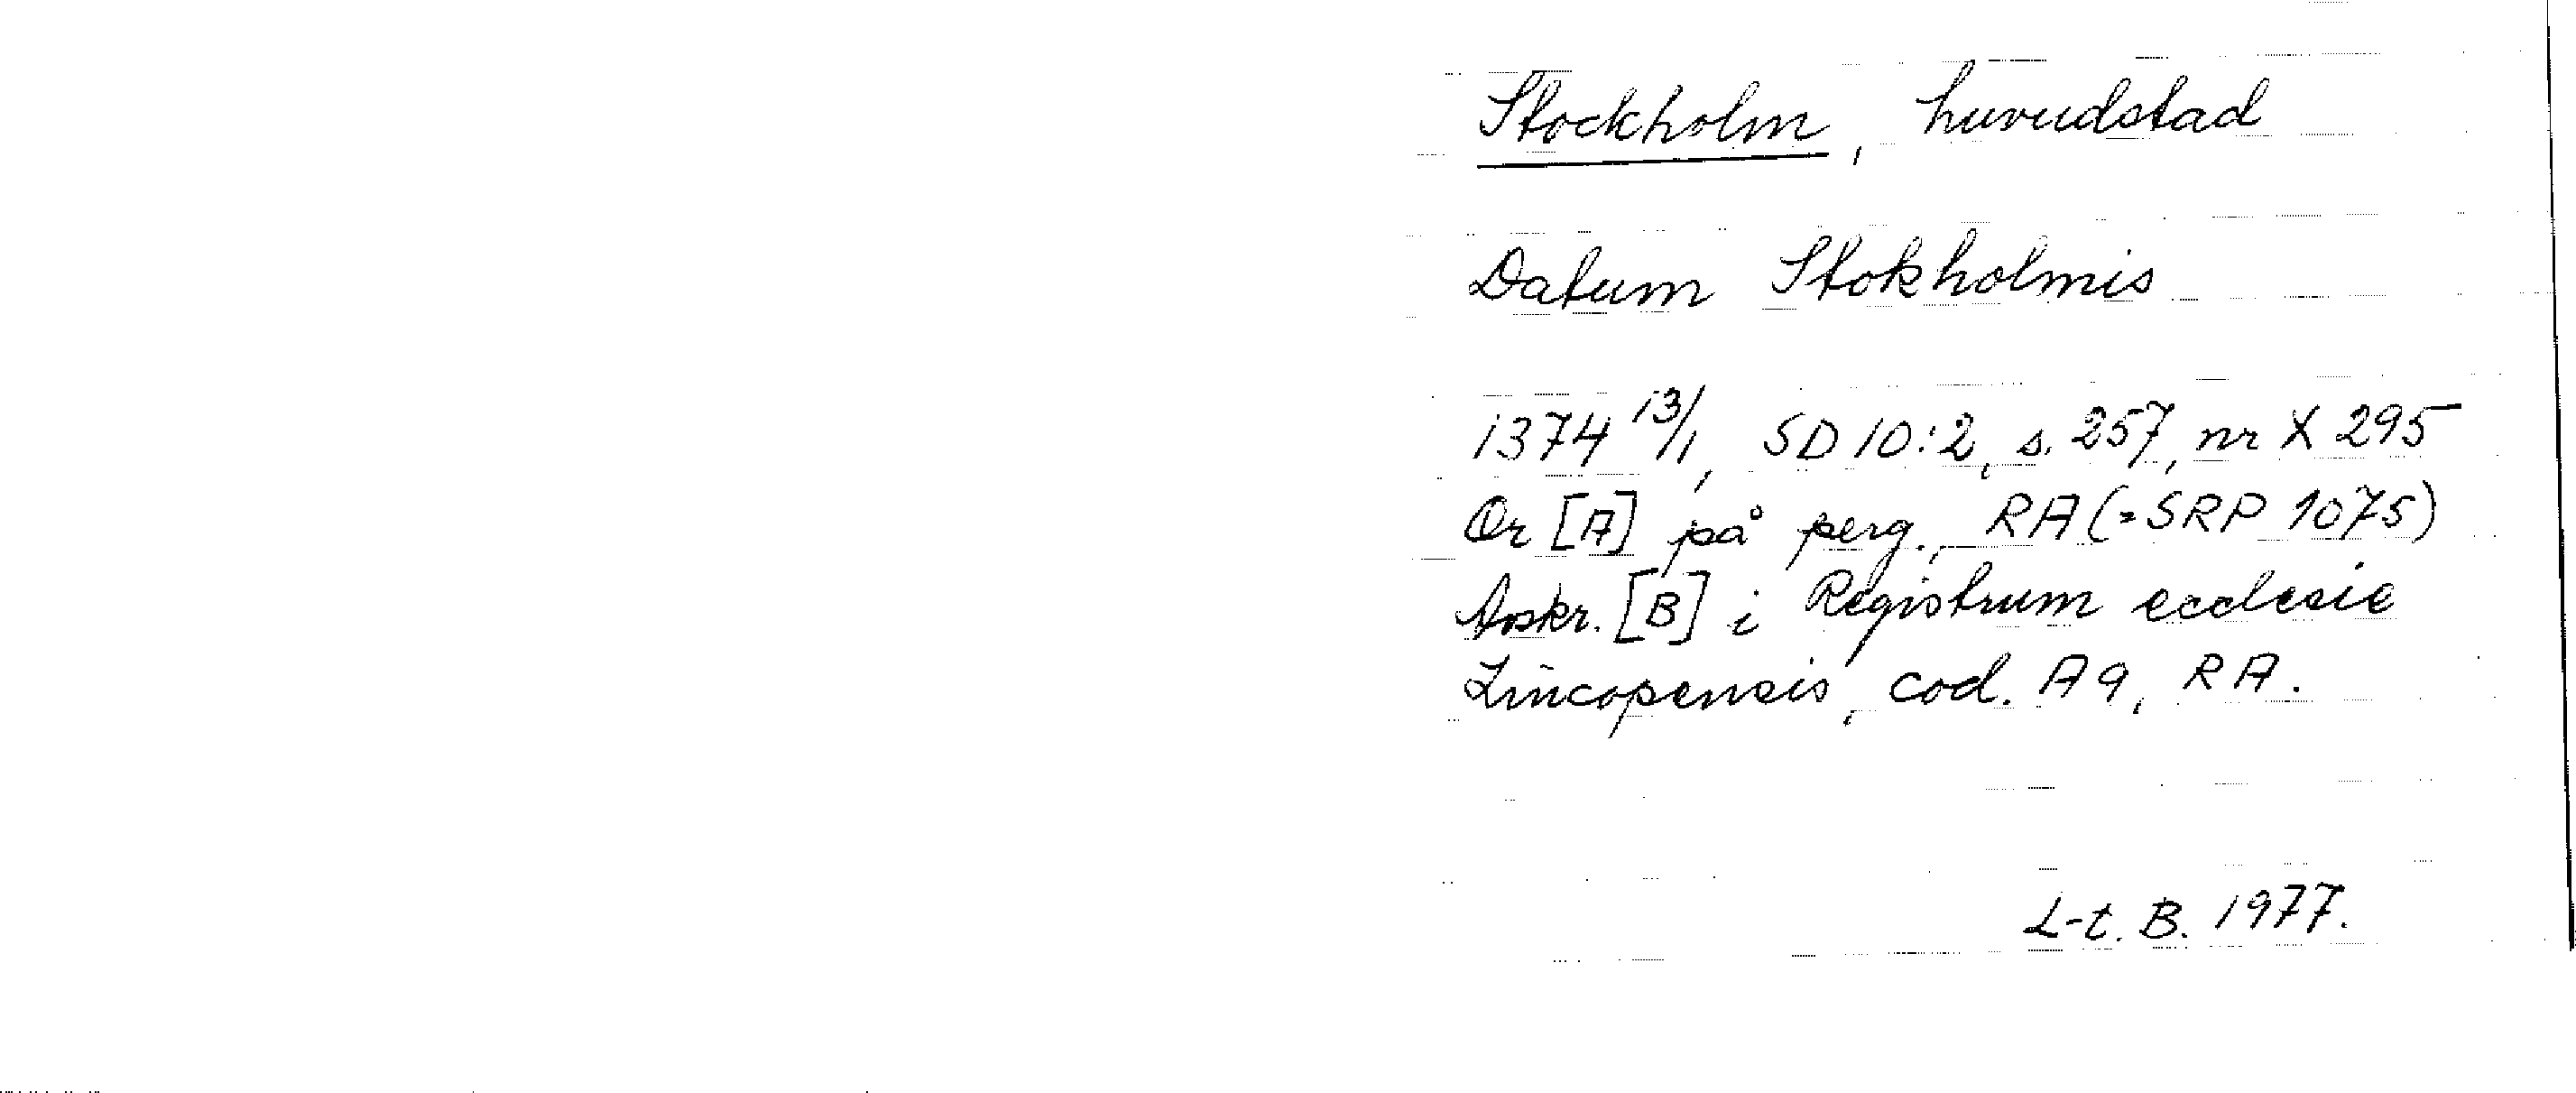 Stockholm, huvudstad
Datum Stokholmis
1374 13/1, SD 10:2, s. 257, nr X 295
Or [A] på perg., RA (=SRP 1075)
Avskr. [B] i Registrum ecclesie
Lincopensis, cod. A9, RA.
L-t. B. 1977.